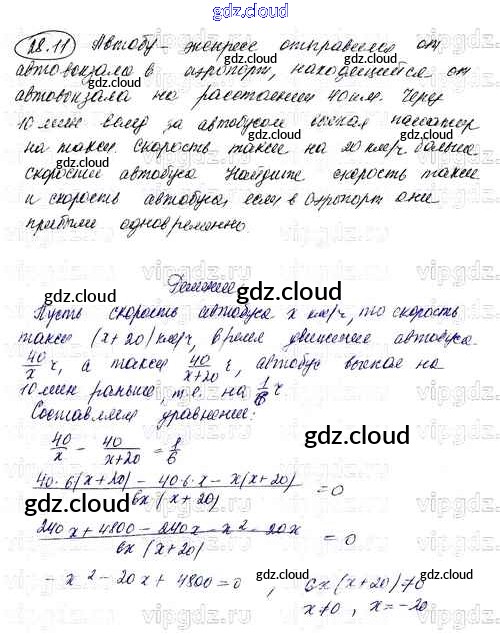 gdz.cloud
28.11 Автобус-экспресс отправился от
gdz.cloud
автовокзала в аэропорт, находящийся от
автовокзала на расстоянии 40 км. Через
10 мин вслед за автобусом выехал пассажир
на такси. Скорость такси на 20 км/ч больше
скорости автобуса. Найдите скорость такси
и скорость автобуса, если в аэропорт они
прибыли одновременно.
Решение
gdz.cloud
Пусть скорость автобуса x км/ч, то скорость
такси (x + 20) км/ч, время движения автобуса
40/x ч, а такси 40/(x+20) ч, автобус выехал на
10 мин раньше, т.е. на 1/6 ч
Составляем уравнение:
gdz.cloud
40/x - 40/(x+20) = 1/6
(40·6(x+20) - 40·6·x - x(x+20))/(6x(x+20)) = 0
gdz.cloud
(240x + 4800 - 240x - x² - 20x)/(6x(x+20)) = 0
- x² - 20x + 4800 = 0, 6x(x+20) ≠ 0
x ≠ 0, x = -20
gdz.cloud